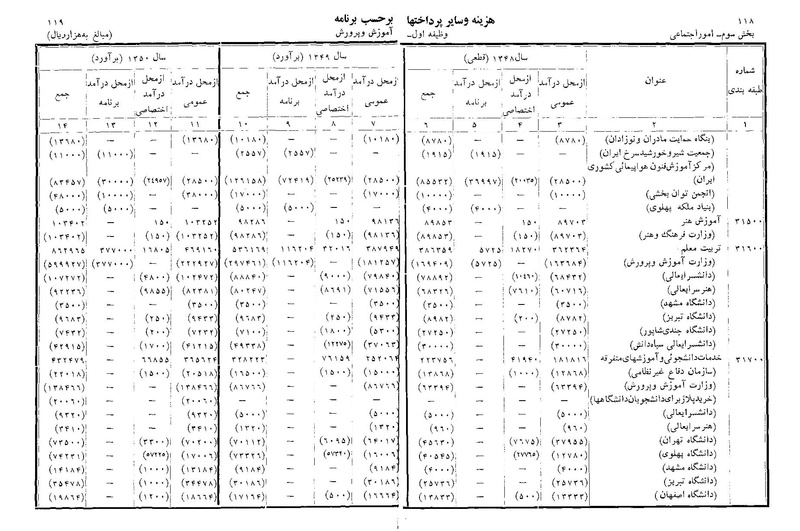 ۱۱۸ هزینه وسایر پرداختها برحسب برنامه ۱۱۹
بخش سوم ـ امور اجتماعی وظیفه اول ـ آموزش وپرورش (مبالغ بههزارریال)
شماره طبقه بندی عنوان سال ۱۳۴۸ (قطعی) سال ۱۳۴۹ (برآورد) سال ۱۳۵۰ (برآورد)
ازمحل درآمد عمومی ازمحل درآمد اختصاصی ازمحل درآمد برنامه جمع ازمحل درآمد عمومی ازمحل درآمد اختصاصی ازمحل درآمد برنامه جمع ازمحل درآمد عمومی ازمحل درآمد اختصاصی ازمحل درآمد برنامه جمع
۱ ۲ ۳ ۴ ۵ ۶ ۷ ۸ ۹ ۱۰ ۱۱ ۱۲ ۱۳ ۱۴
(بنگاه حمایت مادران ونوزادان) (۸۷۸۰) — — (۸۷۸۰) (۱۰۱۸۰) — — (۱۰۱۸۰) (۱۳۶۸۰) — — (۱۳۶۸۰)
(جمعیت شیروخورشیدسرخ ایران) — — (۱۹۱۵) (۱۹۱۵) — — (۲۵۵۷) (۲۵۵۷) — — (۱۱۰۰۰) (۱۱۰۰۰)
(مرکزآموزش فنون هواپیمائی کشوری
ایران) (۲۸۵۰۰) (۲۰۰۳۵) (۳۶۹۹۷) (۸۵۵۳۲) (۲۸۵۰۰) (۲۵۲۳۹) (۷۲۴۱۹) (۱۲۶۱۵۸) (۲۸۵۰۰) (۲۴۹۵۷) (۳۰۰۰۰) (۸۳۴۵۷)
(انجمن توان بخشی) (۱۰۰۰) — — (۱۰۰۰) (۱۷۰۰۰) — — (۱۷۰۰۰) (۳۸۰۰۰) — (۱۰۰۰۰) (۴۸۰۰۰)
(بنیاد ملکه پهلوی) — — (۴۰۰۰) (۴۰۰۰) — — (۵۰۰۰) (۵۰۰۰) — — (۵۰۰۰) (۵۰۰۰)
۳۱۵۰۰ آموزش هنر ۸۹۷۰۳ ۱۵۰ — ۸۹۸۵۳ ۹۸۱۳۶ ۱۵۰ — ۹۸۲۸۶ ۱۰۳۲۵۲ ۱۵۰ — ۱۰۳۴۰۲
(وزارت فرهنگ وهنر) (۸۹۷۰۳) (۱۵۰) — (۸۹۸۵۳) (۹۸۱۳۶) (۱۵۰) — (۹۸۲۸۶) (۱۰۳۲۵۲) (۱۵۰) — (۱۰۳۴۰۲)
۳۱۶۰۰ تربیت معلم ۳۶۲۳۶۴ ۱۸۲۷۰ ۵۷۲۵ ۳۸۶۳۵۹ ۳۸۷۹۴۹ ۳۲۰۱۶ ۱۱۶۲۰۴ ۵۳۶۱۶۹ ۴۶۹۱۶۰ ۱۶۸۰۵ ۳۷۷۰۰۰ ۸۶۲۹۶۵
(وزارت آموزش وپرورش) (۱۶۳۶۸۴) — (۵۷۲۵) (۱۶۹۴۰۹) (۱۸۱۲۵۷) — (۱۱۶۲۰۴) (۲۹۷۴۶۱) (۲۲۲۹۲۷) — (۳۷۷۰۰۰) (۵۹۹۹۲۷)
(دانشسرایعالی) (۶۸۴۳۲) (۱۰۴۶۰) — (۷۸۸۹۲) (۷۹۸۴۰) (۹۰۰۰) — (۸۸۸۴۰) (۱۰۲۴۷۲) (۴۸۰۰) — (۱۰۷۲۷۲)
(هنرسرایعالی) (۶۰۷۱۶) (۷۶۱۰) — (۶۸۳۲۶) (۷۱۵۵۶) (۸۶۹۱) — (۸۰۲۴۷) (۸۲۳۸۱) (۹۸۵۵) — (۹۲۲۳۶)
(دانشگاه مشهد) (۳۵۰۰) — — (۳۵۰۰) (۳۵۰۰) — — (۳۵۰۰) (۳۵۰۰) — — (۳۵۰۰)
(دانشگاه تبریز) (۸۷۸۲) (۲۰۰) — (۸۹۸۲) (۹۴۳۳) (۲۵۰) — (۹۶۸۳) (۹۴۳۳) (۲۵۰) — (۹۶۸۳)
(دانشگاه جندیشاپور) (۲۷۲۵۰) — — (۲۷۲۵۰) (۵۳۰۰) (۱۸۰۰) — (۷۱۰۰) (۷۲۳۲) (۲۰۰) — (۷۴۳۲)
(دانشسرایعالی سپاهدانش) (۳۰۰۰۰) — — (۳۰۰۰۰) (۳۷۰۶۳) (۱۲۲۷۵) — (۴۹۳۳۸) (۴۱۲۱۵) (۱۷۰۰) — (۴۲۹۱۵)
۳۱۷۰۰ خدمات دانشجوئی وآموزشهای متفرقه ۱۸۱۸۱۶ ۴۱۹۴۰ — ۲۲۳۷۵۶ ۲۵۲۰۶۴ ۷۶۱۵۹ — ۳۲۸۲۲۳ ۳۶۵۶۲۴ ۶۶۸۵۵ — ۴۳۲۴۷۹
(سازمان دفاع غیرنظامی) (۱۲۸۶۸) (۱۰۰۰) — (۱۳۸۶۸) (۱۵۰۰۰) (۱۵۰۰) — (۱۶۵۰۰) (۲۰۵۱۸) (۱۵۰۰) — (۲۲۰۱۸)
(وزارت آموزش وپرورش) (۶۳۳۹۴) — — (۶۳۳۹۴) (۸۶۷۶۶) — — (۸۶۷۶۶) (۱۳۸۴۶۶) — — (۱۳۸۴۶۶)
(خریدپلاژبرای دانشجویان دانشگاهها) — — — — — — — — (۲۰۰۶۰) — — (۲۰۰۶۰)
(دانشسرایعالی) (۵۰۰۰) — — (۵۰۰۰) (۵۰۰۰) — — (۵۰۰۰) (۹۳۲۰) — — (۹۳۲۰)
(هنرسرایعالی) (۹۶۰) — — (۹۶۰) (۱۳۲۰) — — (۱۳۲۰) (۳۴۱۰) — — (۳۴۱۰)
(دانشگاه تهران) (۳۷۹۵۵) (۷۶۷۵) — (۴۵۶۳۰) (۶۴۰۱۷) (۶۰۹۵) — (۷۰۱۱۲) (۷۰۲۰۰) (۳۳۰۰) — (۷۳۵۰۰)
(دانشگاه پهلوی) (۱۲۷۸۰) (۲۷۷۶۵) — (۴۰۵۴۵) (۱۶۰۰۶) (۵۷۳۲۰) — (۷۳۳۲۶) (۱۷۰۰۶) (۵۷۲۲۵) — (۷۴۲۳۱)
(دانشگاه مشهد) (۴۰۰۰) — — (۴۰۰۰) (۹۱۸۴) — — (۹۱۸۴) (۱۳۱۸۴) (۱۰۰۰) — (۱۴۱۸۴)
(دانشگاه تبریز) (۲۵۷۳۶) — — (۲۵۷۳۶) (۳۰۱۸۶) — — (۳۰۱۸۶) (۳۴۴۷۸) (۱۰۰۰) — (۳۵۴۷۸)
(دانشگاه اصفهان) (۱۳۳۳۳) (۵۰۰) — (۱۳۸۳۳) (۱۶۶۶۴) (۵۰۰) — (۱۷۱۶۴) (۱۸۶۶۴) (۱۲۰۰) — (۱۹۸۶۴)